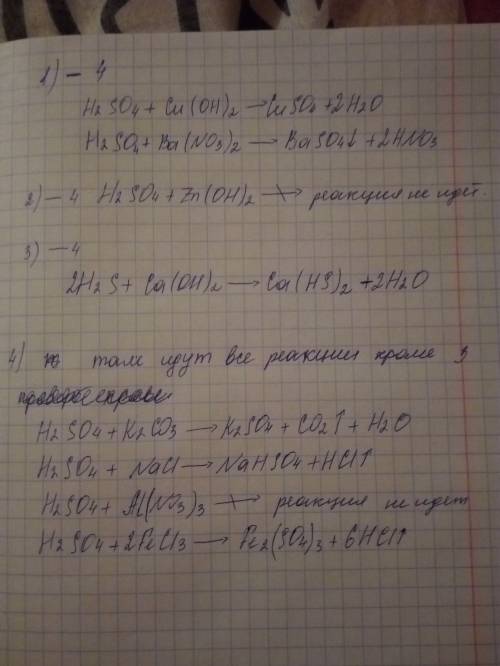 1) - 4
H2SO4 + Cu(OH)2 → CuSO4 + 2H2O
H2SO4 + Ba(NO3)2 → BaSO4↓ + 2HNO3
2) - 4 H2SO4 + Zn(OH)2 ↛ реакция не идет.
3) - 4
2H2S + Ca(OH)2 → Ca(HS)2 + 2H2O
4) там идут все реакции кроме 3
H2SO4 + K2CO3 → K2SO4 + CO2↑ + H2O
H2SO4 + NaCl → NaHSO4 + HCl↑
H2SO4 + Al(NO3)3 ↛ реакция не идет
H2SO4 + 2FeCl3 → Fe2(SO4)3 + 6HCl↑